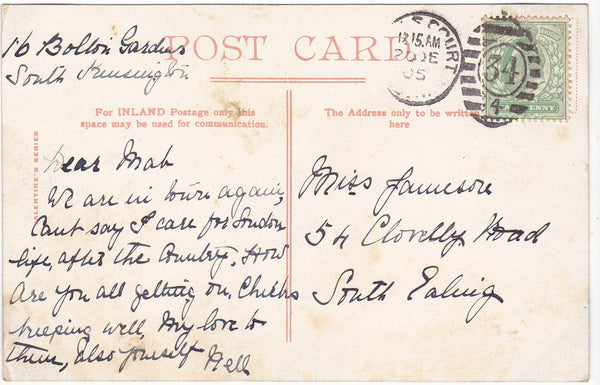 16 Bolton Gardens
South Kensington
POST CARD
S COURT
12.15 AM
20 DE
05
34
4
PENNY
For INLAND Postage only this
space may be used for communication.
The Address only to be written
here
VALENTINE'S SERIES
Dear Mab
We are in town again,
Cant say I care for London
life, after the Country, How
Are you all getting on, Chicks
keeping well, My love to
them, also yourself Nell
Miss Jameson
54 Clovelly Road
South Ealing